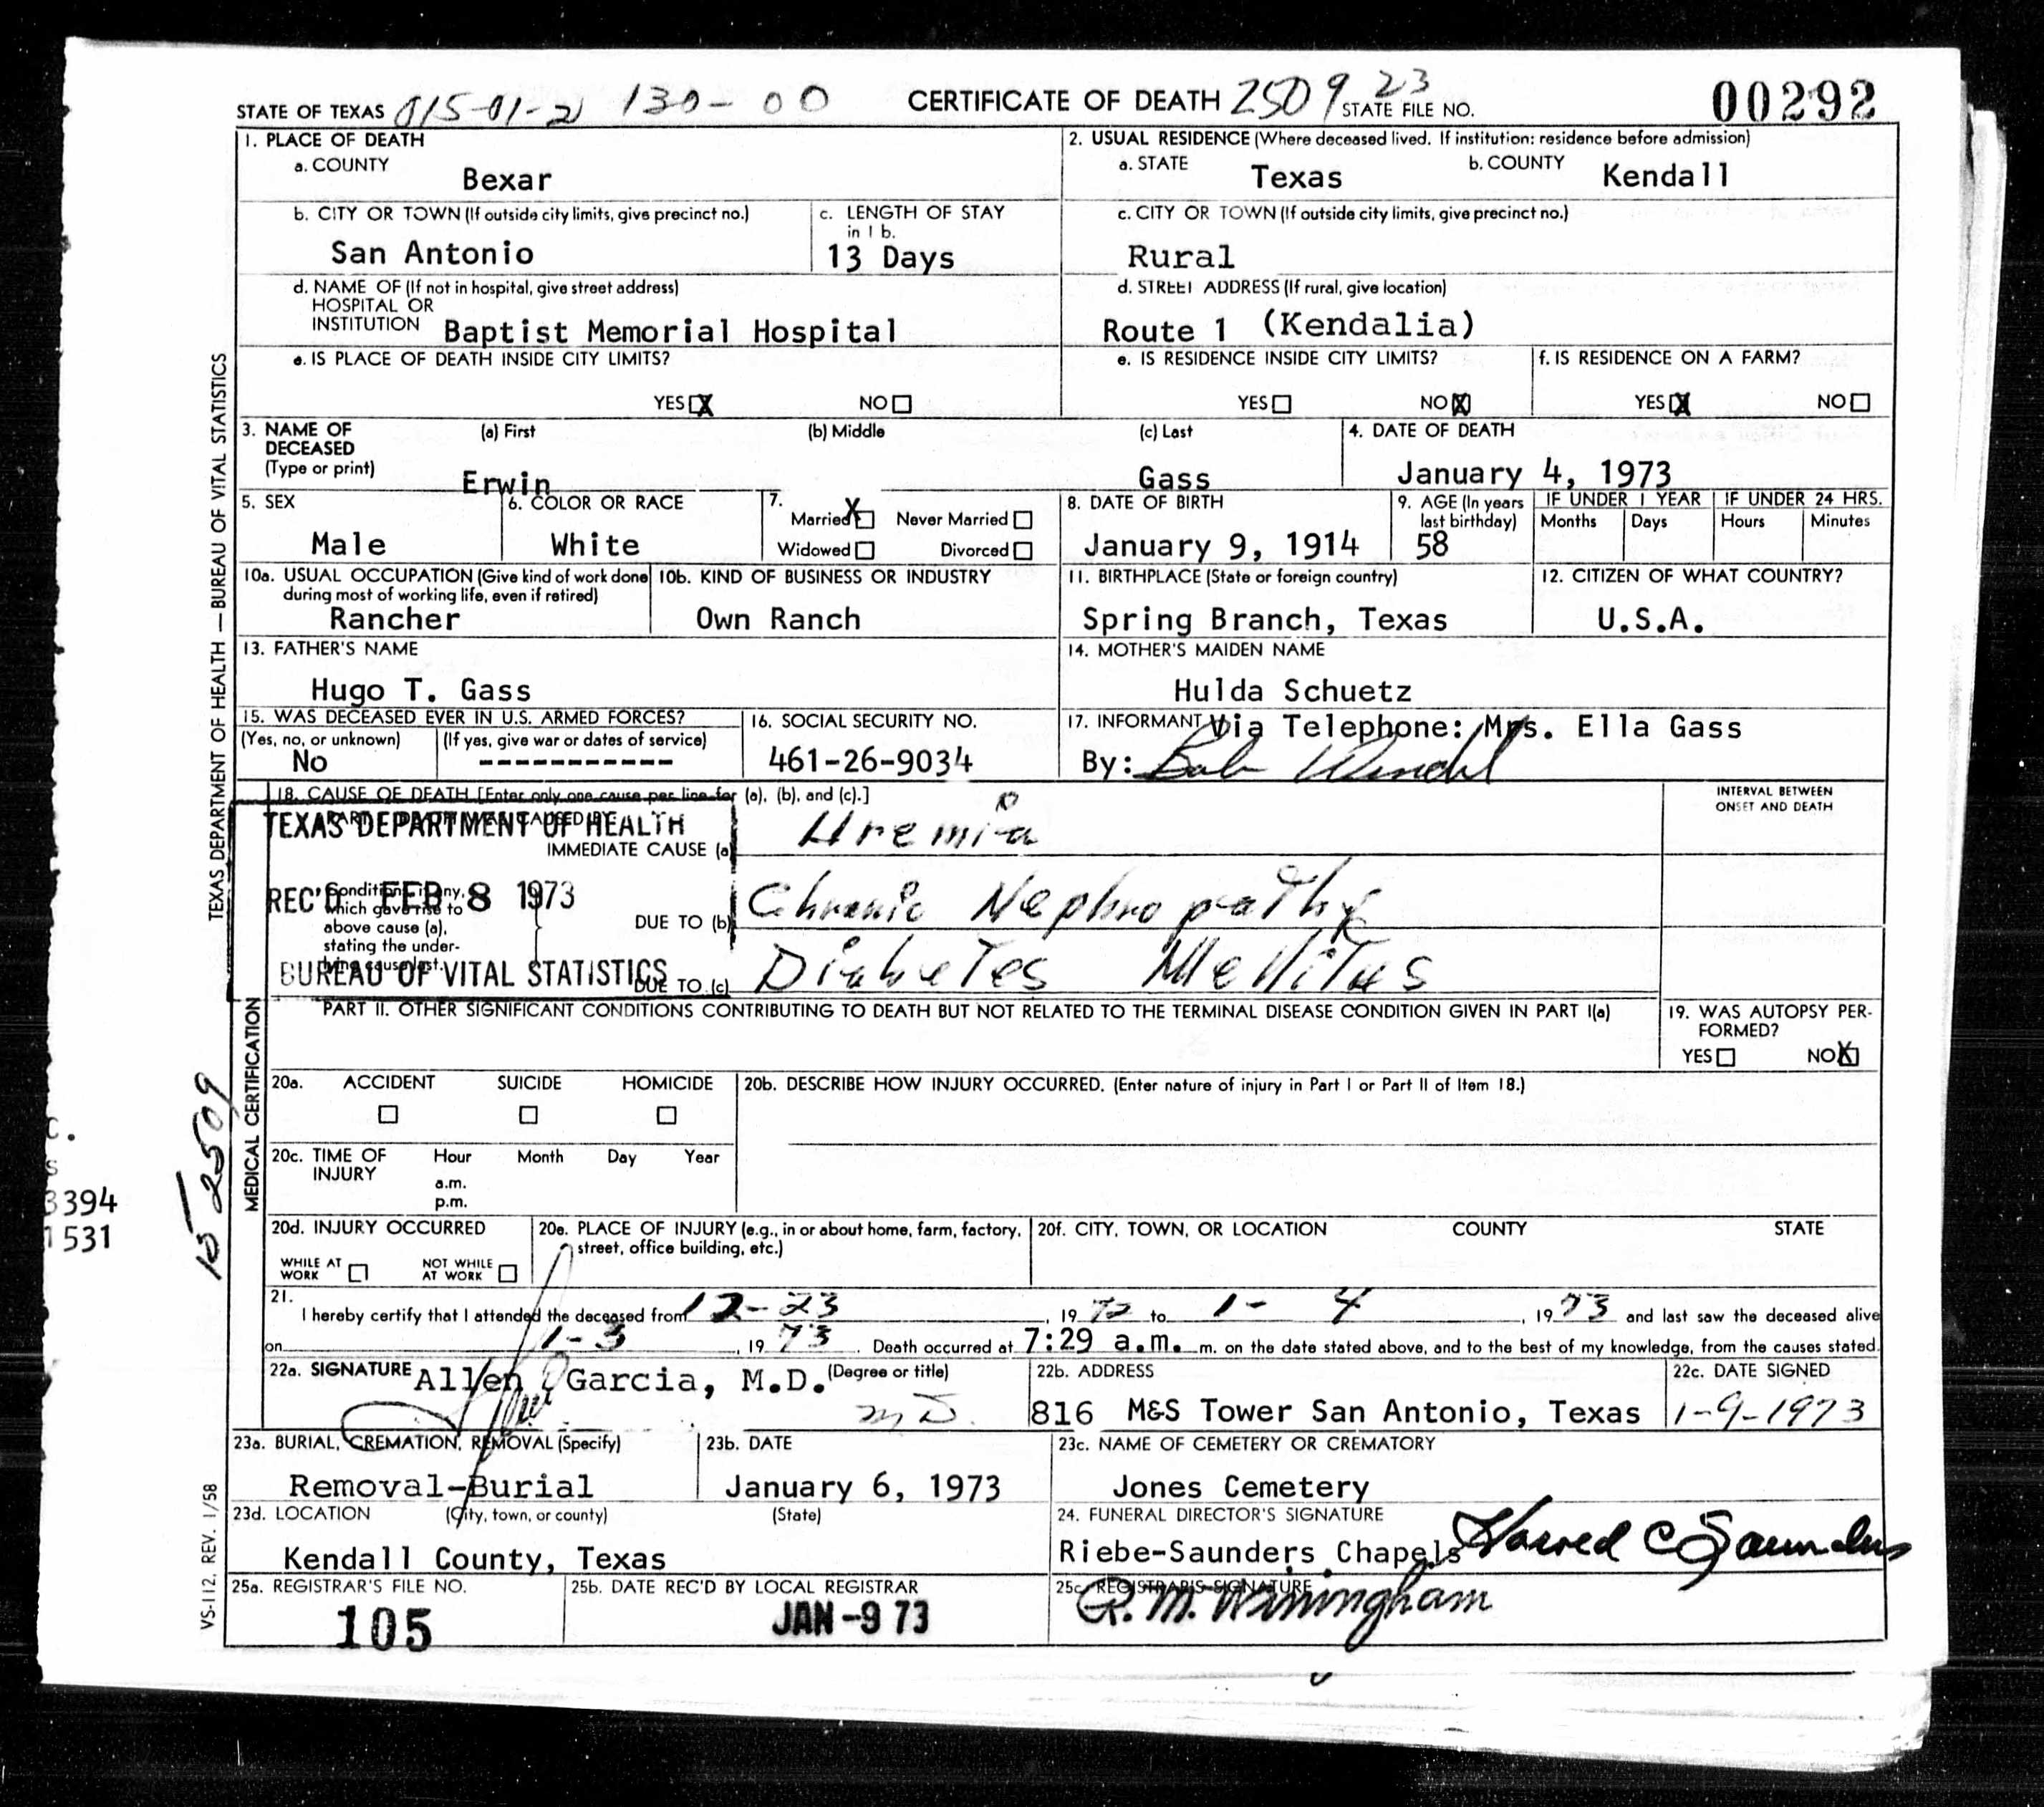 STATE OF TEXAS 015-01-2 130-00 CERTIFICATE OF DEATH 2509 23 STATE FILE NO. 00292
1. PLACE OF DEATH
a. COUNTY Bexar
2. USUAL RESIDENCE (Where deceased lived. If institution: residence before admission)
a. STATE Texas b. COUNTY Kendall
b. CITY OR TOWN (If outside city limits, give precinct no.)
San Antonio
c. LENGTH OF STAY
in 1 b.
13 Days
c. CITY OR TOWN (If outside city limits, give precinct no.)
Rural
d. NAME OF (If not in hospital, give street address)
HOSPITAL OR
INSTITUTION Baptist Memorial Hospital
d. STREET ADDRESS (If rural, give location)
Route 1 (Kendalia)
e. IS PLACE OF DEATH INSIDE CITY LIMITS?
YES X NO
e. IS RESIDENCE INSIDE CITY LIMITS?
YES NO X
f. IS RESIDENCE ON A FARM?
YES X NO
3. NAME OF
DECEASED
(Type or print)
(a) First (b) Middle (c) Last
Erwin Gass
4. DATE OF DEATH
January 4, 1973
5. SEX
Male
6. COLOR OR RACE
White
7.
Married X Never Married
Widowed Divorced
8. DATE OF BIRTH
January 9, 1914
9. AGE (In years
last birthday)
58
IF UNDER 1 YEAR IF UNDER 24 HRS.
Months Days Hours Minutes
10a. USUAL OCCUPATION (Give kind of work done
during most of working life, even if retired)
Rancher
10b. KIND OF BUSINESS OR INDUSTRY
Own Ranch
11. BIRTHPLACE (State or foreign country)
Spring Branch, Texas
12. CITIZEN OF WHAT COUNTRY?
U.S.A.
13. FATHER'S NAME
Hugo T. Gass
14. MOTHER'S MAIDEN NAME
Hulda Schuetz
15. WAS DECEASED EVER IN U.S. ARMED FORCES?
(Yes, no, or unknown) (If yes, give war or dates of service)
No -----------
16. SOCIAL SECURITY NO.
461-26-9034
17. INFORMANT Via Telephone: Mrs. Ella Gass
By:
18. CAUSE OF DEATH [Enter only one cause per line for (a), (b), and (c).]
INTERVAL BETWEEN
ONSET AND DEATH
TEXAS DEPARTMENT OF HEALTH
IMMEDIATE CAUSE (a) Uremia
REC'D FEB 8 1973
Conditions, if any,
which gave rise to
above cause (a),
stating the under-
lying cause last.
DUE TO (b) Chronic Nephropathy
BUREAU OF VITAL STATISTICS
DUE TO (c) Diabetes Mellitus
PART II. OTHER SIGNIFICANT CONDITIONS CONTRIBUTING TO DEATH BUT NOT RELATED TO THE TERMINAL DISEASE CONDITION GIVEN IN PART I(a)
19. WAS AUTOPSY PER-
FORMED?
YES NO X
20a. ACCIDENT SUICIDE HOMICIDE
20b. DESCRIBE HOW INJURY OCCURRED. (Enter nature of injury in Part I or Part II of Item 18.)
20c. TIME OF
INJURY
Hour Month Day Year
a.m.
p.m.
20d. INJURY OCCURRED
WHILE AT
WORK
NOT WHILE
AT WORK
20e. PLACE OF INJURY (e.g., in or about home, farm, factory,
street, office building, etc.)
20f. CITY, TOWN, OR LOCATION COUNTY STATE
21.
I hereby certify that I attended the deceased from 12-23, 1972 to 1-4, 1973 and last saw the deceased alive
on 1-3, 1973. Death occurred at 7:29 a.m. m. on the date stated above, and to the best of my knowledge, from the causes stated.
22a. SIGNATURE Allen Garcia, M.D. (Degree or title)
M.D.
22b. ADDRESS
816 M&S Tower San Antonio, Texas
22c. DATE SIGNED
1-9-1973
23a. BURIAL, CREMATION, REMOVAL (Specify)
Removal-Burial
23b. DATE
January 6, 1973
23c. NAME OF CEMETERY OR CREMATORY
Jones Cemetery
23d. LOCATION (City, town, or county) (State)
Kendall County, Texas
24. FUNERAL DIRECTOR'S SIGNATURE
Riebe-Saunders Chapels C Saunders
25a. REGISTRAR'S FILE NO.
105
25b. DATE REC'D BY LOCAL REGISTRAR
JAN -9 73
25c. REGISTRAR'S SIGNATURE
R. M. Winingham
TEXAS DEPARTMENT OF HEALTH — BUREAU OF VITAL STATISTICS
MEDICAL CERTIFICATION
VS-112, REV. 1/58
15 2509
3394
1531